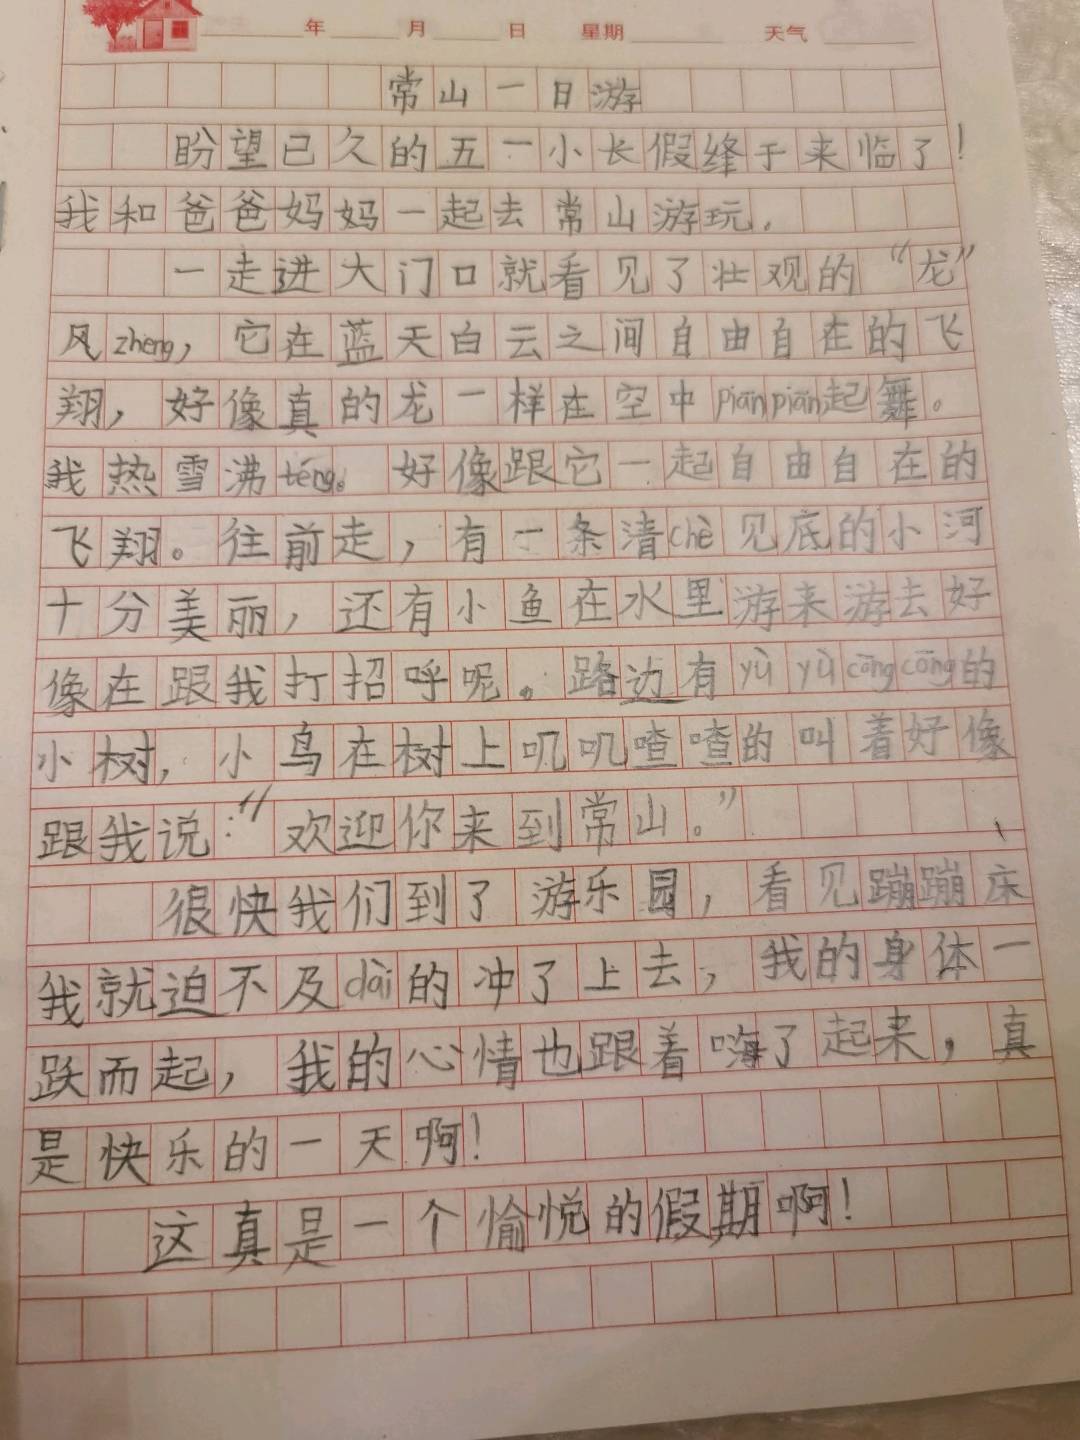 年 月 日 星期 天气
常山一日游
盼望已久的五一小长假缝于来临了！
我和爸爸妈妈一起去常山游玩.
一走进大门口就看见了壮观的“龙”
风zheng，它在蓝天白云之间自由自在的飞
翔，好像真的龙一样在空中piānpiān起舞。
我热雪沸téng。好像跟它一起自由自在的
飞翔。往前走，有一条清chè见底的小河
十分美丽，还有小鱼在水里游来游去好
像在跟我打招呼呢。路边有yù yù cōngcōng的
小树，小鸟在树上叽叽喳喳的叫着好像
跟我说：“欢迎你来到常山。”
很快我们到了游乐园，看见蹦蹦床
我就迫不及dài的冲了上去，我的身体一
跃而起，我的心情也跟着嗨了起来，真
是快乐的一天啊！
这真是一个愉悦的假期啊！